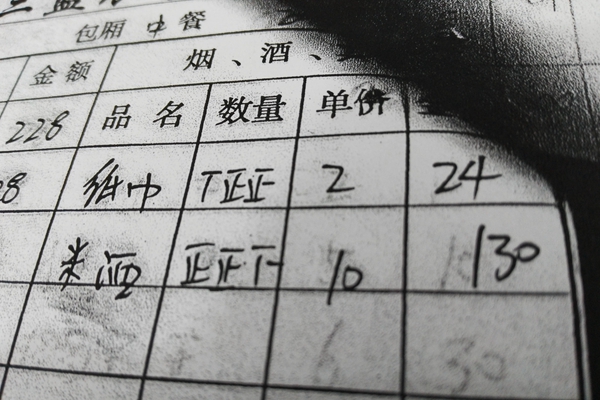 包厢 中餐
金额 烟、酒、
228 品名 数量 单价
28 纸巾 丅正正 2 24
米酒 正正下 10 130
6 30